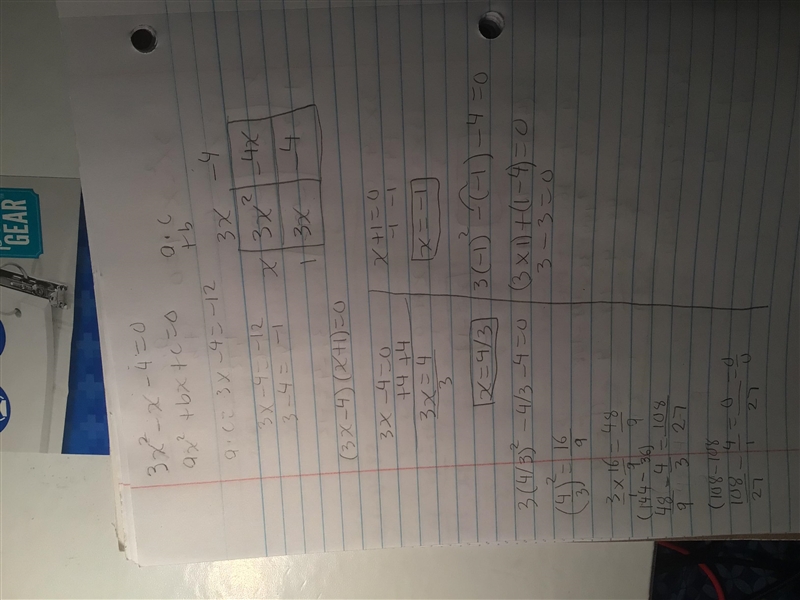 3x² - x - 4 = 0
ax² + bx + c = 0
a·c
+b
a·c = 3 x -4 = -12
3x-4 = -12
3-4 = -1
3x -4
x 3x² -4x
1 3x -4
(3x-4)(x+1)=0
3x - 4 = 0
+4 +4
3x = 4
3
x = 4/3
x + 1 = 0
-1 -1
x = -1
3(4/3)² - 4/3 - 4 = 0
(4/3)² = 16/9
3/1 x 16/9 = 48/9
(144-36)
48/9 - 4/3 = 108/27
(108-108
108/27 - 4/1 = 0/27 = 0/0
3(-1)² - (-1) - 4 = 0
(3x1) + (1-4) = 0
3 - 3 = 0
GEAR